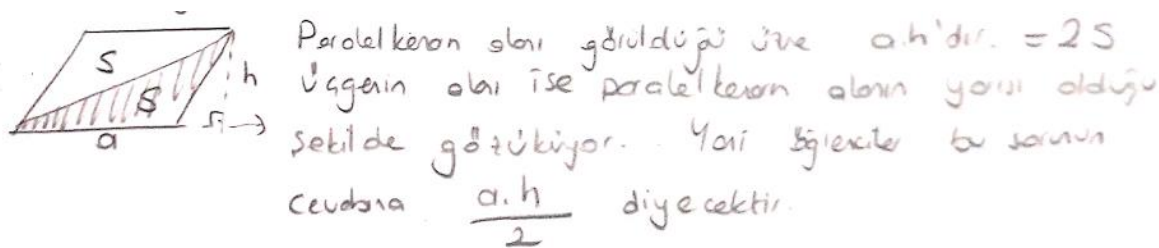 Paralelkenarın alanı görüldüğü üzre a.h'dır. = 2S
Üçgenin alanı ise paralelkenarın alanın yarısı olduğu
şekilde gözüküyor. Yani öğrenciler bu sorunun
cevabına a.h / 2 diyecektir.
S
S
h
a